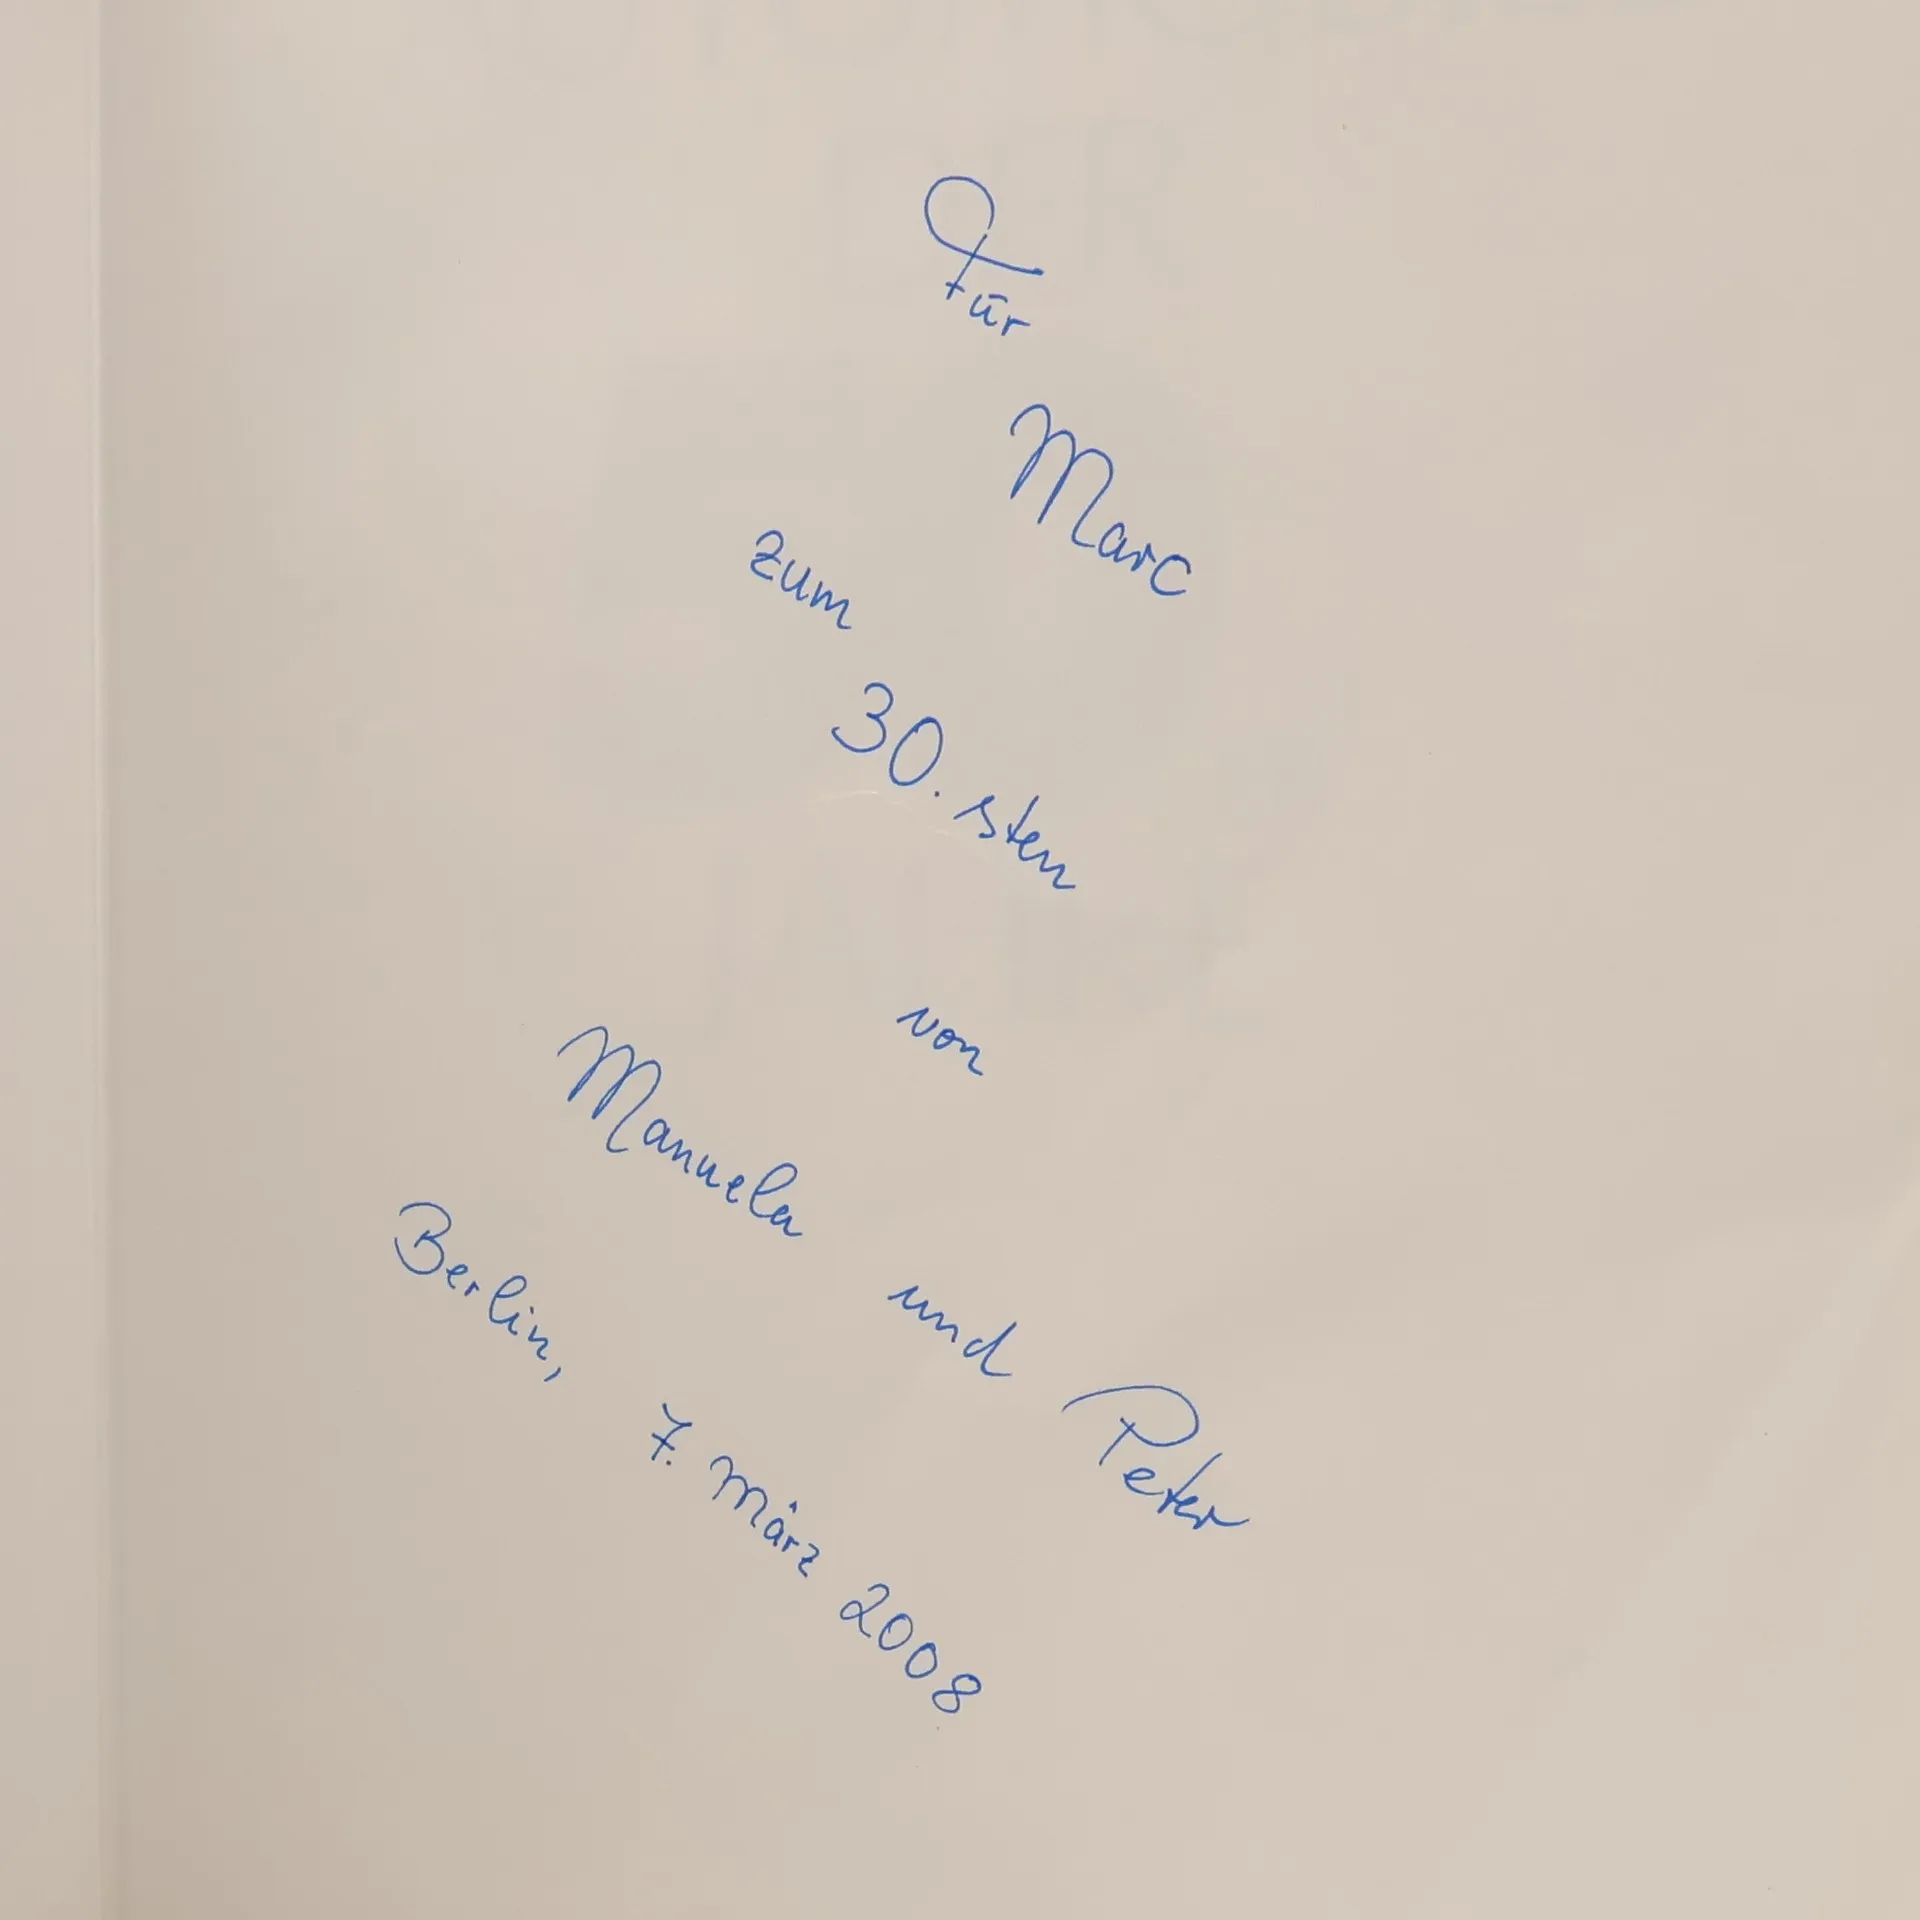 Für
Marc
zum
30.sten
von
Manuela und Peter
Berlin, 7. März 2008